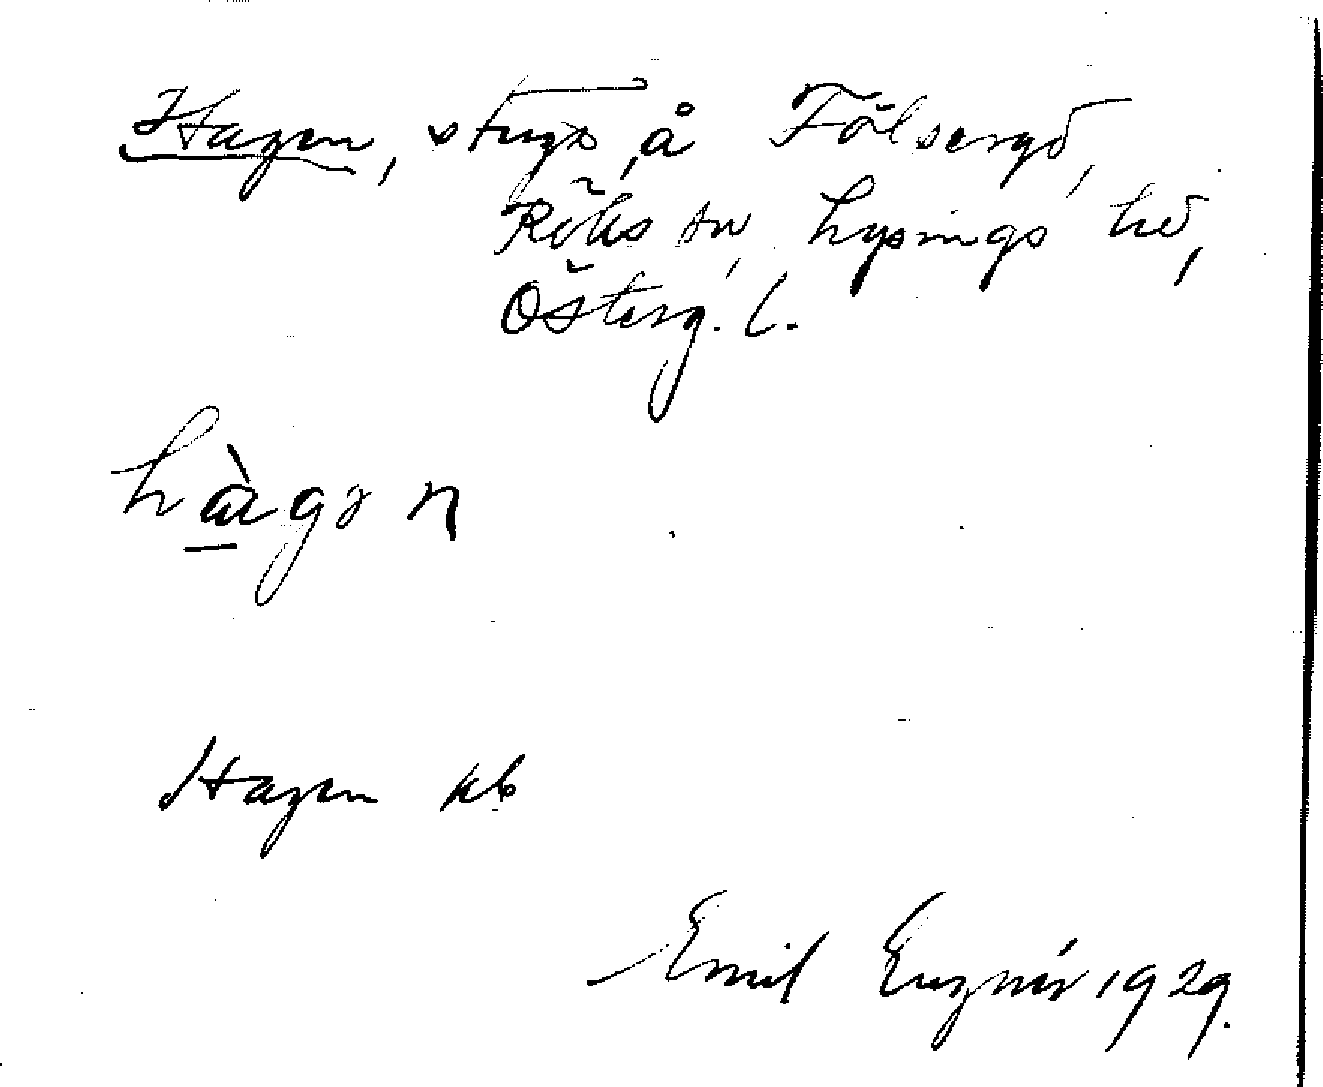 Hagen, stuga å Fölsergd,
Röks sn, Lysings hd,
Österg. l.
hàgən
Hagen kb
Emil Eugnér 1929.